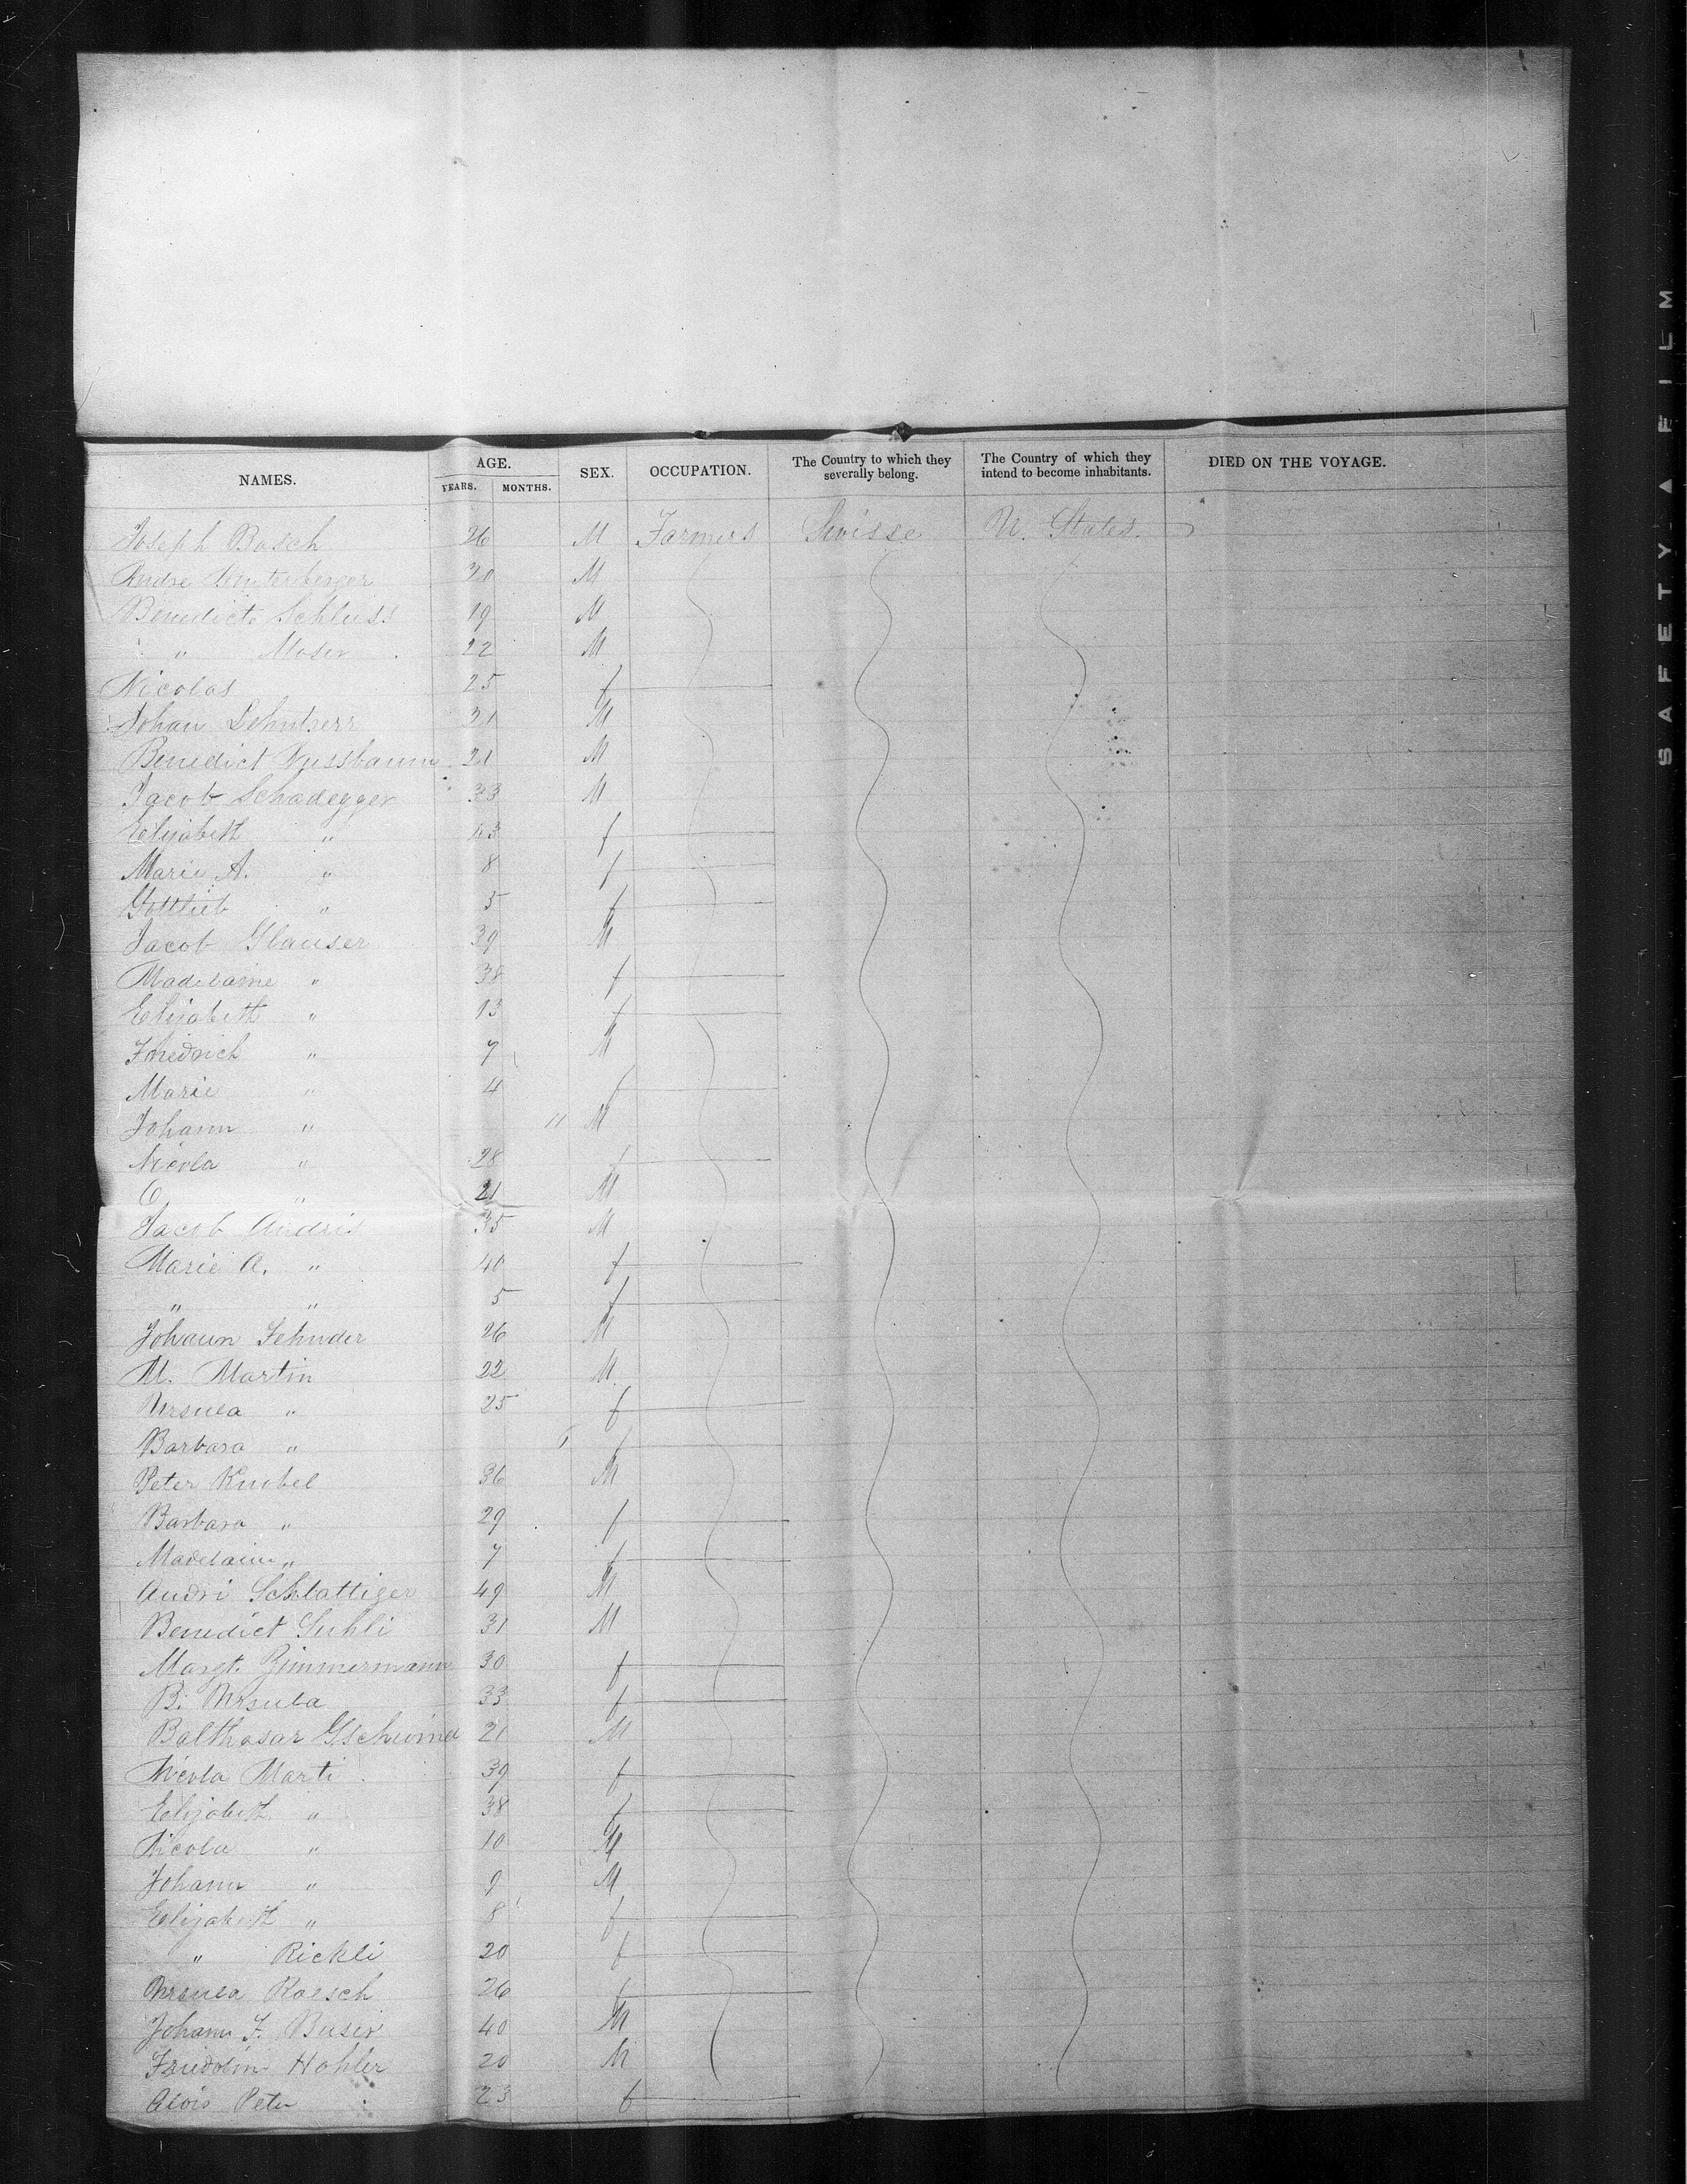 NAMES. AGE. YEARS. MONTHS. SEX. OCCUPATION. The Country to which they severally belong. The Country of which they intend to become inhabitants. DIED ON THE VOYAGE.
Joseph Bosch 26 M Farmers Swisse U. States
Andre 30 M
Benedict Schluss 19 M
" Moser 22 M
Nicolas 25 f
Johan 21 M
Benedict Nussbaum 21 M
Jacob Schadegger 33 M
Elijabeth " 43 f
Marie A. " 8 f
Gottlieb " 5 f
Jacob Glauser 39 M
Madelaine " 38 f
Elijabeth " 13 f
Friedrich " 7 M
Marie " 4 f
Johann " 11 M
Nicola " 28 f
C. " 21 M
Jacob Andris 35 M
Marie A. " 40 f
" " 5 f
Johann Zehnder 26 M
M. Martin 22 M
Ursula " 25 f
Barbara " f
Peter Knobel 36 M
Barbara " 29 f
Madelaine " 7 f
Andri Schlattiger 49 M
Benedict 31 M
Margt. Zimmermann 30 f
B. Ursula 33 f
Balthasar Gschwind 21 M
Nicola Marti 39 f
Elijabeth " 38 f
Nicola " 10 M
Johann " 9 M
Elijabeth " 8 f
" Rickli 20 f
Ursula Roesch 26 f
Johann F. Buser 40 M
Friedolin Hohler 20 M
Alois Peter 23 f
SAFETY ▲ FILM